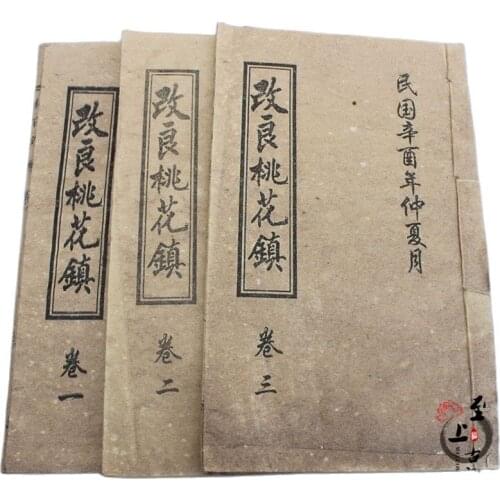 改良桃花鎮
卷一
改良桃花鎮
卷二
改良桃花鎮
卷三
民国辛酉年仲夏月
至
上
古